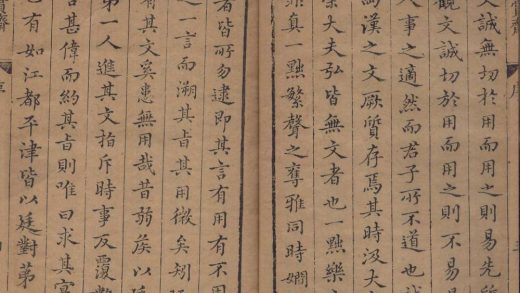 文誠無切於用而用之則易先所
觀文誠切於用而用之則不易
人事之適然而君子所不道也
為漢之文厥質存焉其時汲大
大夫弘皆無文者也一點樂
真一點繁聲之奪雅同時嫻
者皆所易逮即其言有用有不
一言而溯其旨其用微矣矧
有其文奚患無用哉昔弱侯以
第一人進其文指斥時事反覆
言甚偉而約其旨則唯曰求其
有如江都平津皆以廷對第
齋
序